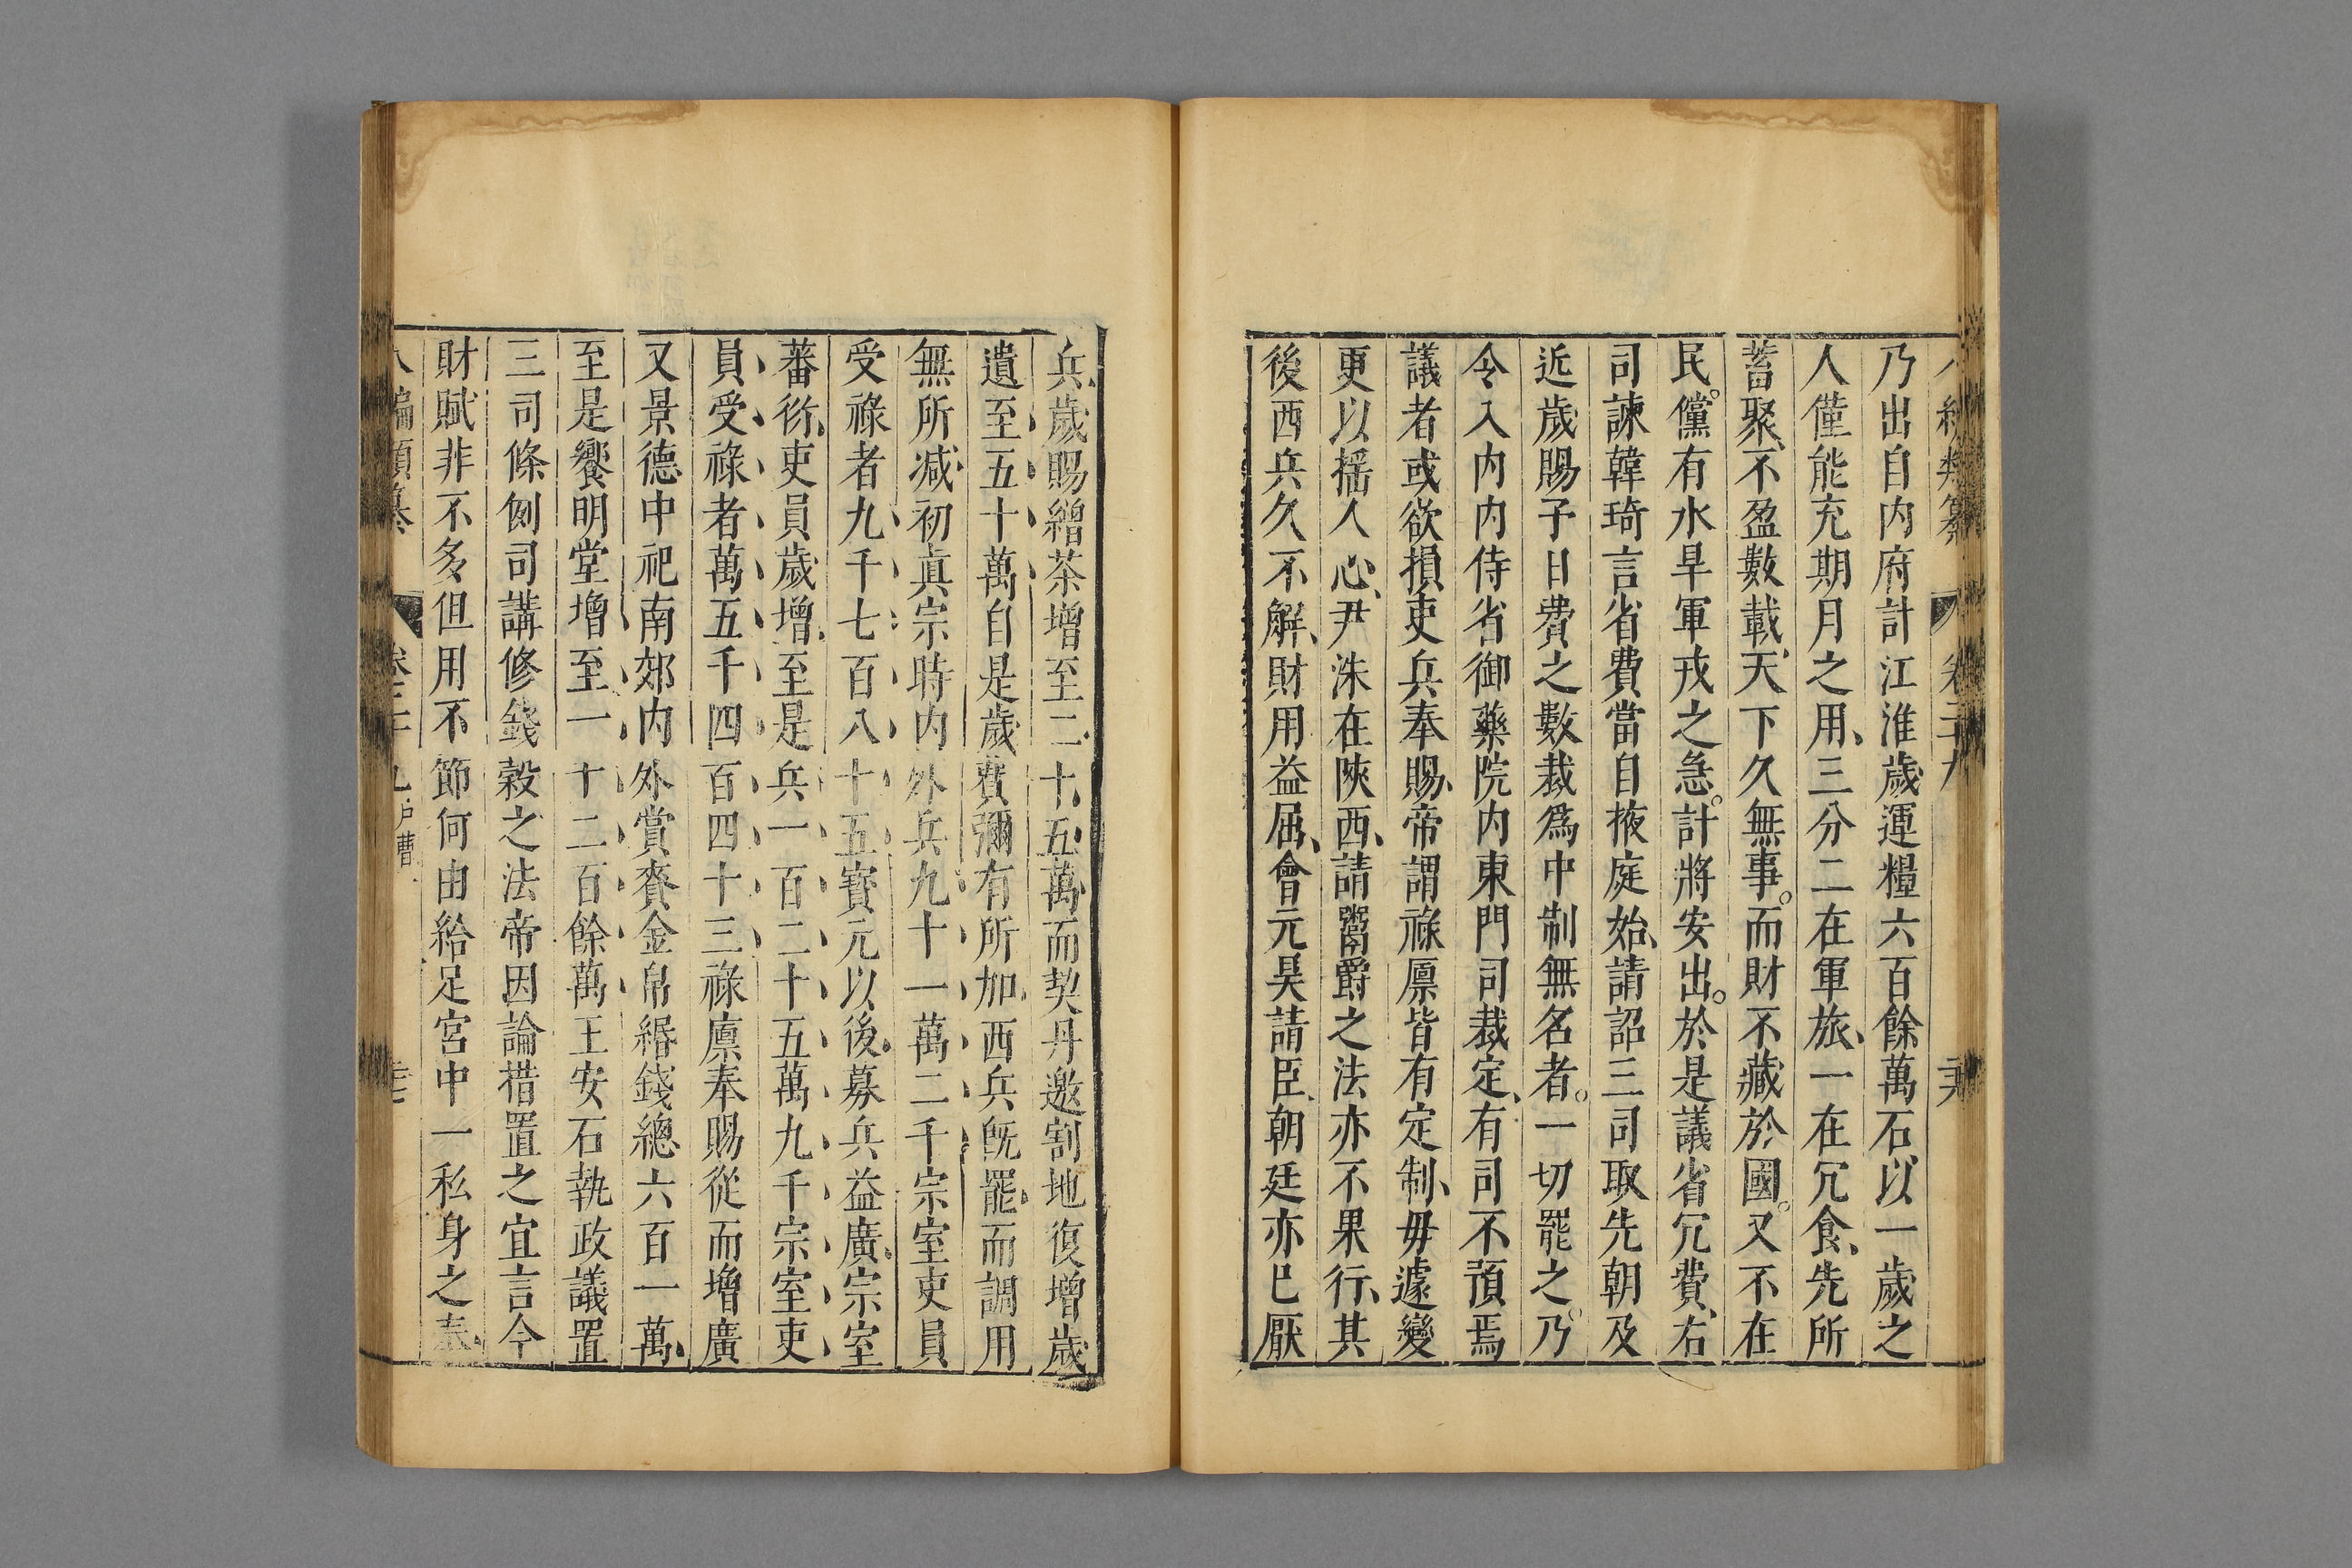 乃出自内府計江淮歲運糧六百餘萬石以一歲之
人僅能充期月之用三分二在軍旅一在冗食先所
蓄聚不盈數載天下久無事而財不藏於國又不在
民儻有水旱軍戎之急計將安出於是議省冗費右
司諫韓琦言省費當自掖庭始請詔三司取先朝及
近歲賜予日費之數裁爲中制無名者一切罷之乃
令入内内侍省御藥院内東門司裁定有司不預焉
議者或欲損吏兵奉賜帝謂祿廪皆有定制毋遽變
更以揺人心尹洙在陝西請鬻爵之法亦不果行其
後西兵久不解財用益屈會元昊請臣朝廷亦已厭
兵歲賜繒茶增至二十五萬而契丹邀割地復增歲
遺至五十萬自是歲費彌有所加西兵既罷而調用
無所減初眞宗時内外兵九十一萬二千宗室吏員
受祿者九千七百八十五寳元以後募兵益廣宗室
蕃衍吏員歲增至是兵一百二十五萬九千宗室吏
員受祿者萬五千四百四十三祿廪奉賜從而增廣
又景德中祀南郊内外賞賚金帛緡錢總六百一萬
至是饗明堂增至一十二百餘萬王安石執政議置
三司條例司講修錢榖之法帝因論措置之宜言今
財賦非不多但用不節何由給足宮中一私身之奉
編類纂 卷二十九 戸曹